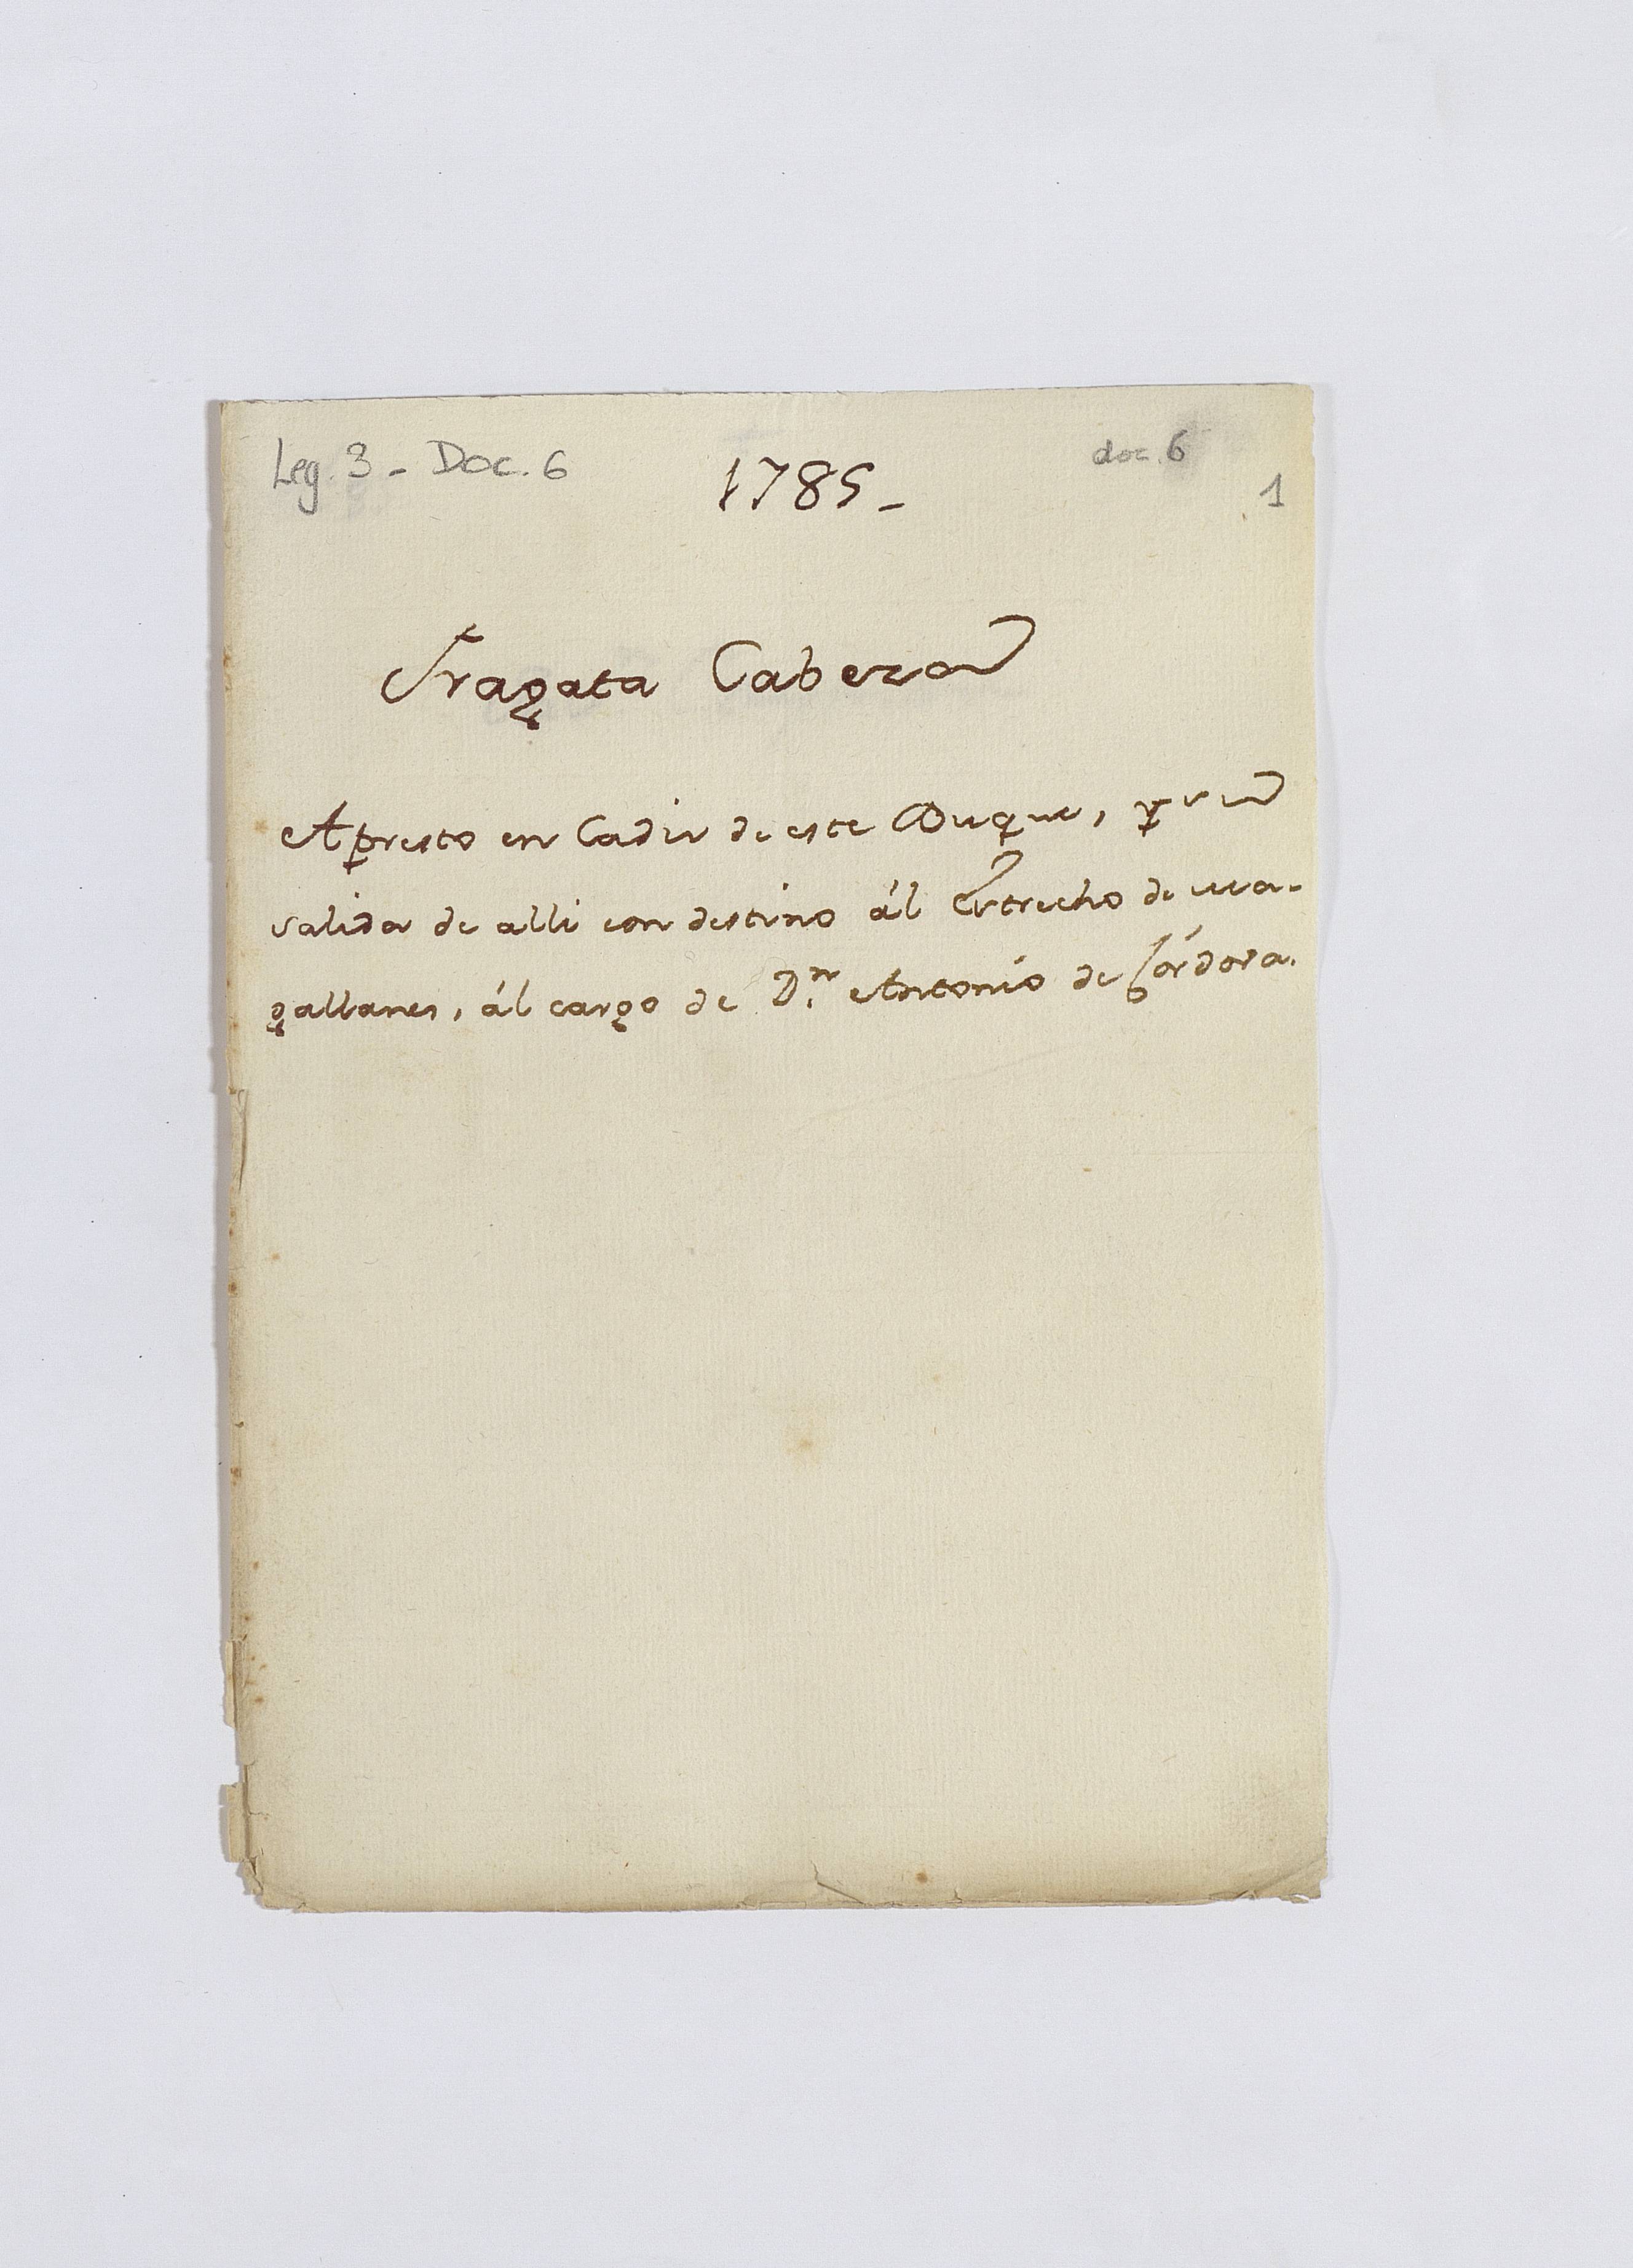 Leg. 3 - Doc. 6
doc. 6
1785_
1
Fragata Cabeza
Apresto en Cadiz de este Buque, y su
salida de alli con destino ál Estrecho de Ma-
gallanes, ál cargo de D.ⁿ Antonio de Córdova.